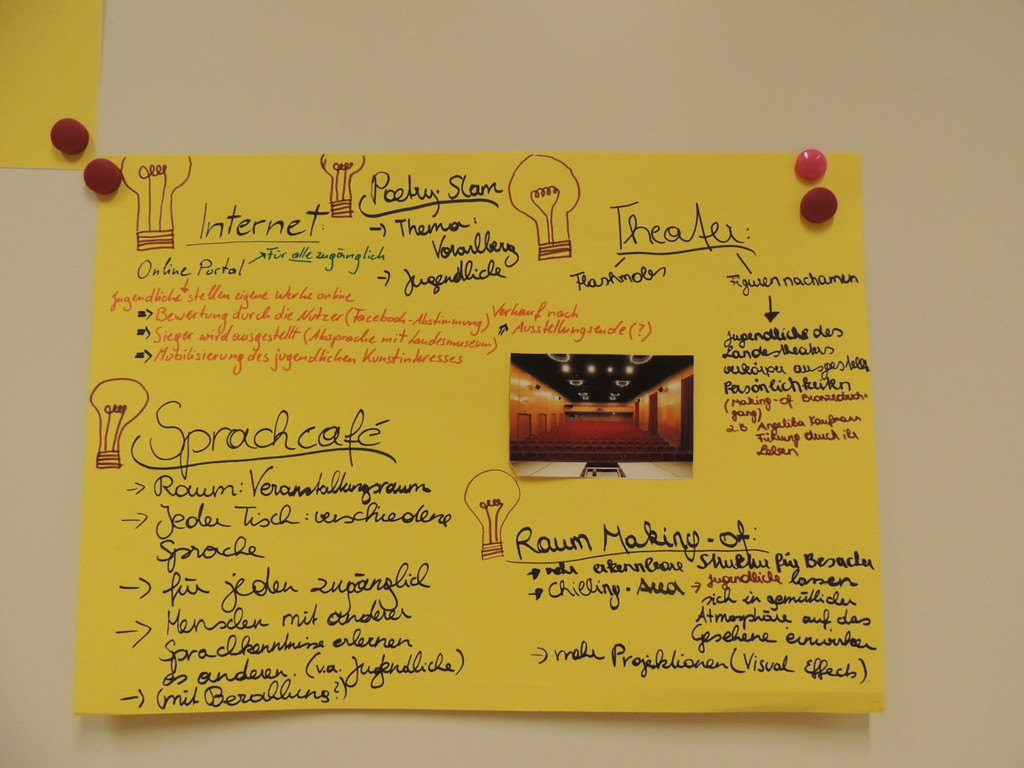 Internet:
Online Portal
Für alle zugänglich
Jugendliche stellen eigene Werke online
=> Bewertung durch die Nutzer (Facebook-Abstimmung)
=> Sieger wird ausgestellt (Absprache mit Landesmuseum)
=> Mobilisierung des jugendlichen Kunstinteresses
Verkauf nach
Ausstellungsende (?)
Poetry Slam
-> Thema:
Vorarlberg
-> Jugendliche
Theater:
Flashmobs
Figuren nachamen
Jugendliche des
Landestheaters
verkörper ausgestellte
Persönlichkeiten
(Making-of Bronzedurch-
gang)
z.B Angelika Kaufmann
Führung durch ihr
Leben
Sprachcafé
-> Raum: Veranstaltungsraum
-> Jeder Tisch: verschiedene
Sprache
-> für jeden zugänglich
-> Menschen mit anderer
Sprachkenntnisse erlernen
es anderen. (v.a. Jugendliche)
-> (mit Bezallung?)
Raum Making-of:
-> mehr erkennbare Struktur für Besucher
-> Chilling-Area -> Jugendliche lassen
sich in gemütlicher
Atmosphäre auf das
Gesehene einwirken
-> mehr Projektionen (Visual Effects)